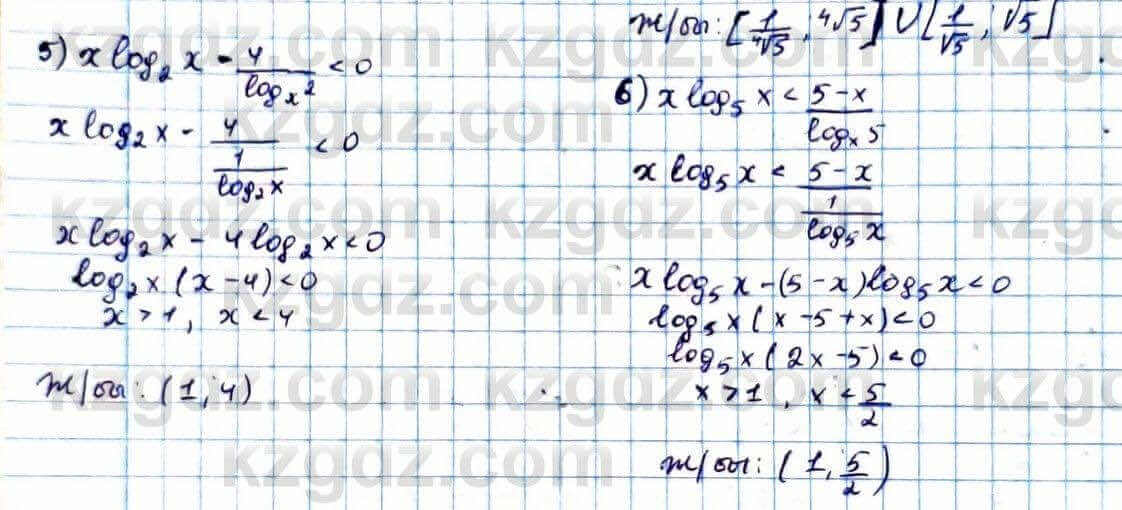 5) x log₂ x - 4/logₓ 2 < 0
x log₂ x - 4/(1/log₂ x) < 0
x log₂ x - 4 log₂ x < 0
log₂ x (x - 4) < 0
x > 1, x < 4
Ж/бы: (1, 4)
Ж/бы: [1/⁴√5, ⁴√5] ∪ [1/√5, √5]
6) x log₅ x < (5 - x)/logₓ 5
x log₅ x < (5 - x)/(1/log₅ x)
x log₅ x - (5 - x) log₅ x < 0
log₅ x (x - 5 + x) < 0
log₅ x (2x - 5) < 0
x > 1, x < 5/2
Ж/бы: (1, 5/2)
kzgdz.com